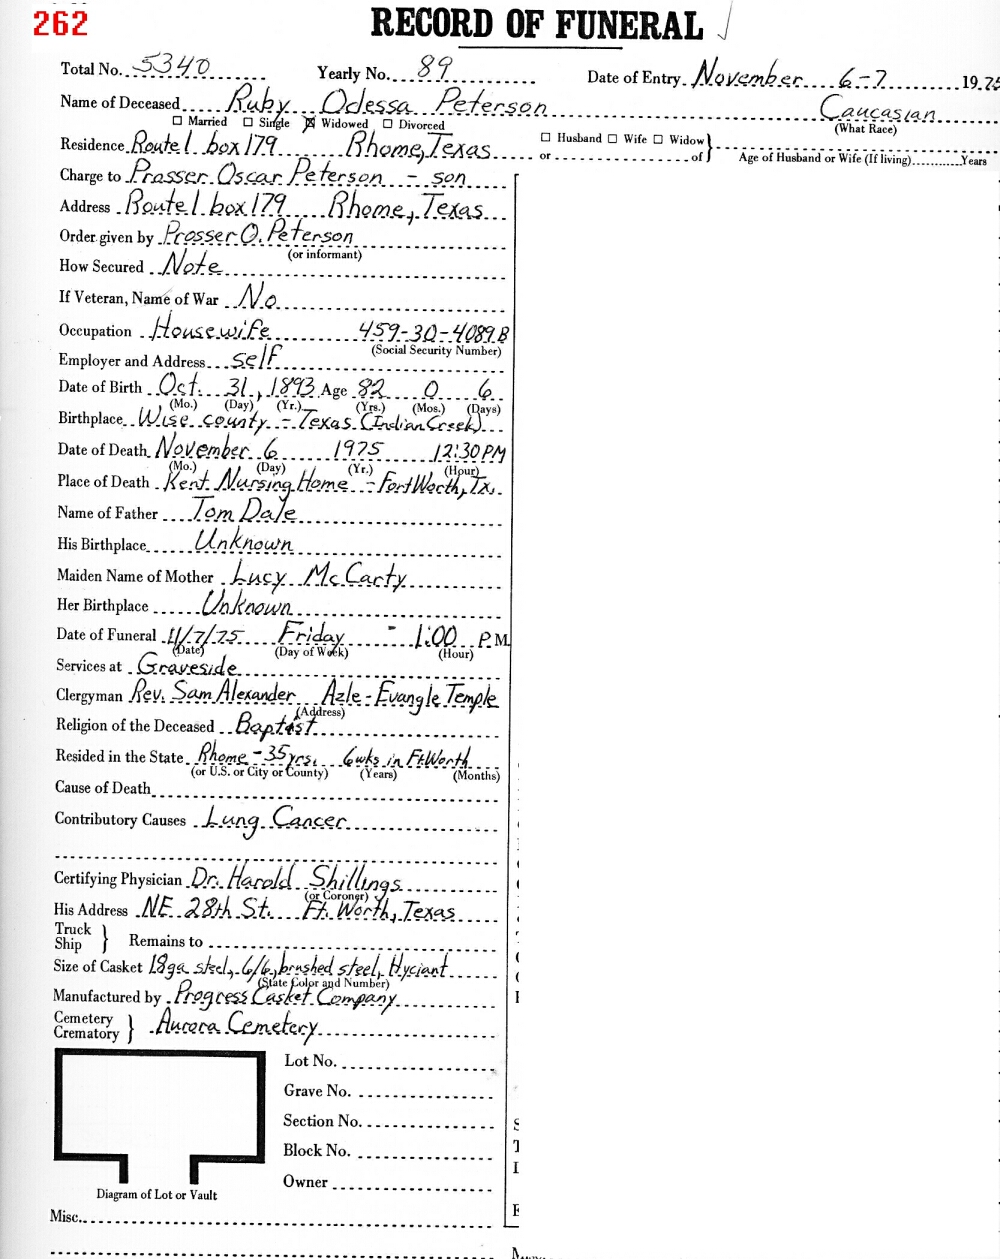 262
RECORD OF FUNERAL
Total No. 5340 Yearly No. 89 Date of Entry November 6-7 1975
Name of Deceased Ruby Odessa Peterson Caucasian
☐ Married ☐ Single ☒ Widowed ☐ Divorced (What Race)
Residence Route 1 box 179 Rhome, Texas ☐ Husband ☐ Wife ☐ Widow
or of Age of Husband or Wife (If living) Years
Charge to Prosser Oscar Peterson - son
Address Route 1 box 179 Rhome, Texas
Order given by Prosser O. Peterson
(or informant)
How Secured Note
If Veteran, Name of War No
Occupation Housewife 459-30-4089B
(Social Security Number)
Employer and Address self
Date of Birth Oct. 31, 1893 Age 82 0 6
(Mo.) (Day) (Yr.) (Yrs.) (Mos.) (Days)
Birthplace Wise county - Texas (Indian Creek)
Date of Death November 6 1975 12:30 PM
(Mo.) (Day) (Yr.) (Hour)
Place of Death Kent Nursing Home - Fort Worth, Tx.
Name of Father Tom Dale
His Birthplace Unknown
Maiden Name of Mother Lucy McCarty
Her Birthplace Unknown
Date of Funeral 11/7/75 Friday - 1:00 P.M.
(Date) (Day of Week) (Hour)
Services at Graveside
Clergyman Rev. Sam Alexander Azle - Evangle Temple
(Address)
Religion of the Deceased Baptist
Resided in the State Rhome - 35 yrs. 6 wks in Ft. Worth
(or U.S. or City or County) (Years) (Months)
Cause of Death
Contributory Causes Lung Cancer
Certifying Physician Dr. Harold Shillings
(or Coroner)
His Address NE 28th St. Ft. Worth, Texas
Truck
Ship } Remains to
Size of Casket 18ga steel, 6/6, brushed steel, Hyciant
(State Color and Number)
Manufactured by Progress Casket Company
Cemetery
Crematory } Aurora Cemetery
Lot No.
Grave No.
Section No.
Block No.
Owner
Diagram of Lot or Vault
Misc.